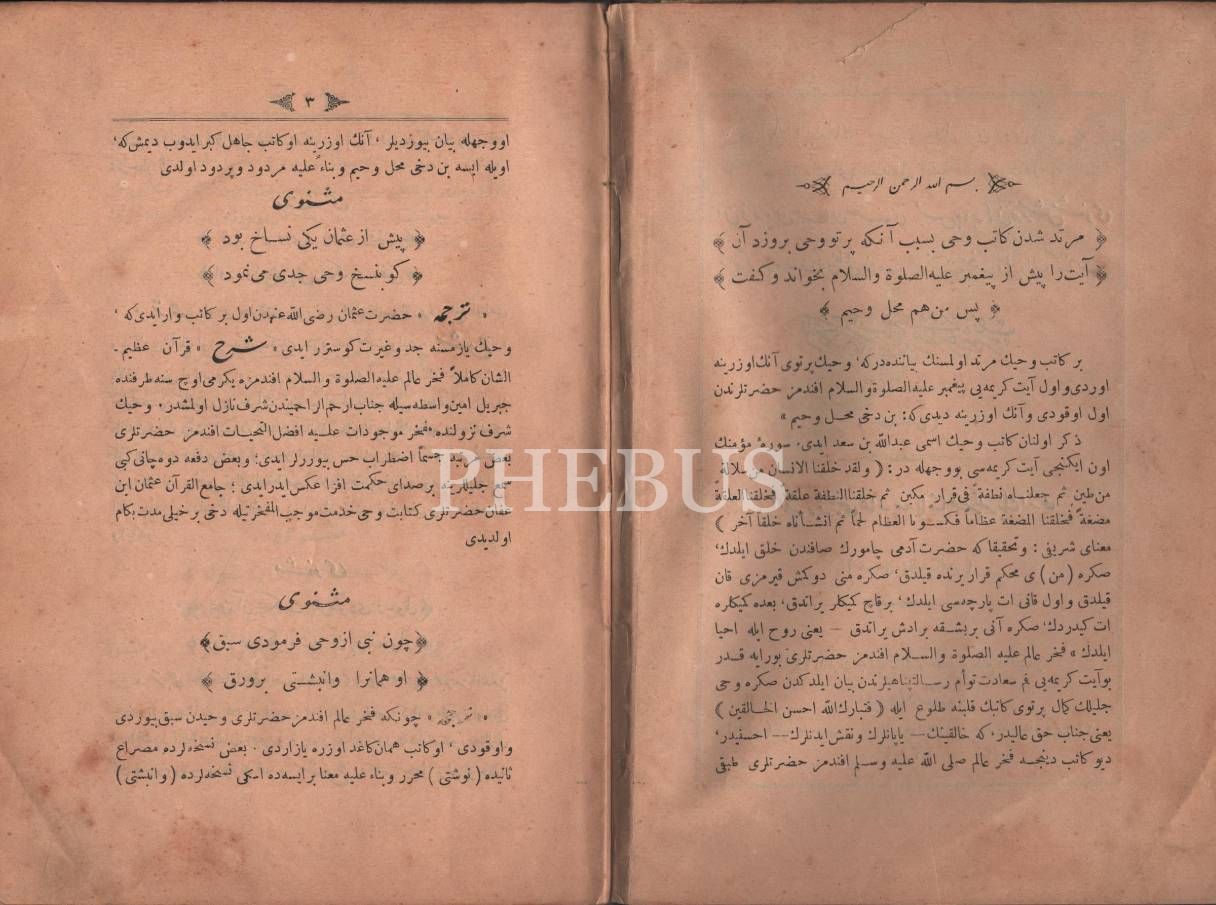 بسم الله الرحمن الرحيم
﴿ مرتد شدن كاتب وحی بسبب آنكه پرتو وحی بروزد آن ﴾
﴿ آیت را پیش از پیغمبر علیه الصلوة والسلام بخواند و كفت ﴾
﴿ پس من هم محل وحیم ﴾
بر كاتب وحیك مرتد اولمسنك بیاننده دركه، وحیك پرتوی آنك اوزرینه
اوردی و اول آیت كریمه‌یی پیغمبر علیه الصلوة والسلام افندمز حضرتلرندن
اول اوقودی و آنك اوزرینه دیدی كه: بن دخی محل وحیم »
ذكر اولنان كاتب وحیك اسمی عبدالله بن سعد ایدی. سورهٔ مؤمنك
اون ایكنجی آیت كریمه‌سی بووجهله در: ( ولقد خلقنا الانسان من سلالة
من طین ثم جعلناه نطفة فی قرار مكین ثم خلقنا النطفة علقة فخلقنا العلقة
مضغةً فخلقنا المضغة عظاماً فكسونا العظام لحماً ثم انشأناه خلقاً آخر )
معنای شریفی: وتحقیقا كه حضرت آدمی چامورك صافندن خلق ایلدك،
صكره (من) ی محكم قرار یرنده قیلدق، صكره منی دوكمش قیرمزی قان
قیلدق و اول قانی ات پارچه‌سی ایلدك، برقاچ كمیكلر یراتدق، بعده كمیكلره
ات كیدردك، صكره آنی بر بشقه برادش یراتدق — یعنی روح ایله احیا
ایلدك » فخر عالم علیه الصلوة والسلام افندمز حضرتلری بورایه قدر
بو آیت كریمه‌یی فم سعادت توأم رسالتپناهیلرندن بیان ایلدكدن صكره وحی
جلیلك كمال پرتوی كاتبك قلبنه طلوع ایله ( فتبارك الله احسن الخالقین )
یعنی جناب حق عالیدر، كه خالقینك — یاپانلرك و نقش ایدنلرك — احسنیدر،
دیو كاتب دینجه فخر عالم صلی الله علیه وسلم افندمز حضرتلری طبقی
٣
او وجهله بیان بیوزدیلر، آنك اوزرینه او كاتب جاهل كبر ایدوب دیمش كه،
اویله ایسه بن دخی محل وحیم وبناءً علیه مردود و پردود اولدی
مثنوی
﴿ پیش از عثمان یكی نساخ بود ﴾
﴿ كو بنسخ وحی جدی می نمود ﴾
« ترجمه » حضرت عثمان رضی الله عنهدن اول بر كاتب وار ایدی كه،
وحیك یازمسنه جد و غیرت كوسترر ایدی « شرح » قرآن عظیم-
الشان كاملاً فخر عالم علیه الصلوة والسلام افندمزه یكرمی اوچ سنه ظرفنده
جبریل امین واسطه سیله جناب ارحم الراحمیندن شرف نازل اولمشدر. وحیك
شرف نزولنده مفخر موجودات علیه افضل التحیات افندمز حضرتلری
بعض جسماً اضطراب حس بیوررلر ایدی؛ و بعض دفعه ده چاڭ كبی
سمع جلیللرینه بر صدای حكمت افزا عكس ایدر ایدی؛ جامع القرآن عثمان ابن
عفان حضرتلری كتابت وحی خدمت موجب المفخرتیله دخی بر خیلی مدت بكام
اولدیدی
مثنوی
﴿ چون نبی از وحی فرمودی سبق ﴾
﴿ او همانرا وانبشتی بر ورق ﴾
« ترجمه » چونكه فخر عالم افندمز حضرتلری وحیدن سبق بیوردی
و اوقودی، او كاتب همان كاغد اوزره یازاردی. بعض نسخه‌لرده مصراع
ثانیده (نوشتی) محرر وبناء علیه معنا بر ایسه‌ده اسكی نسخه‌لرده (وانبشتی)
PHEBUS